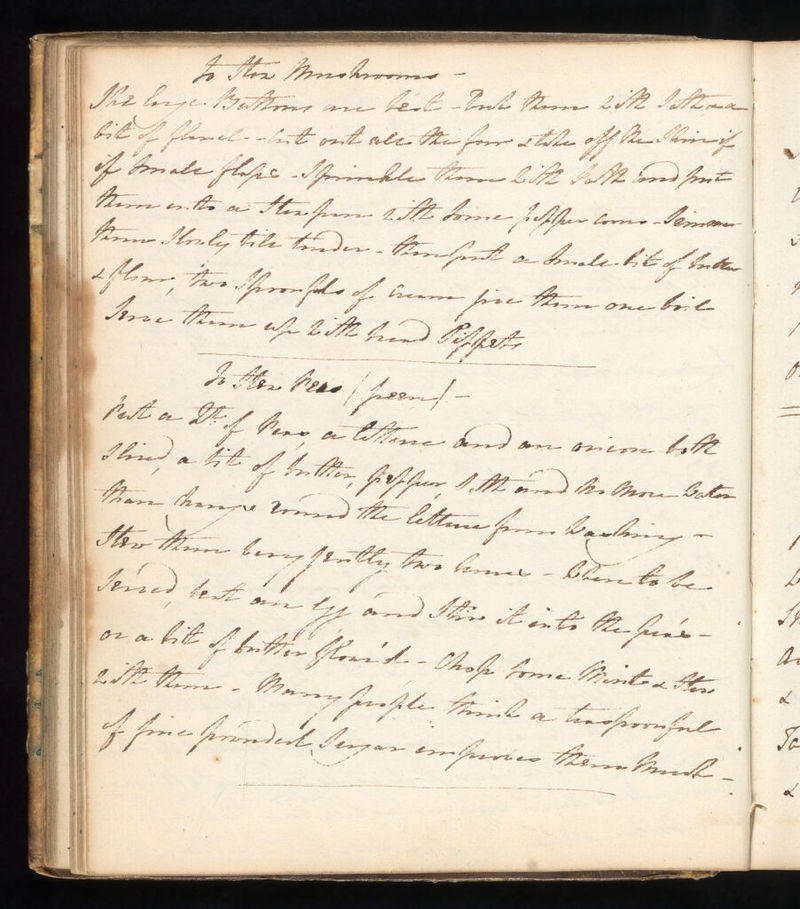 To Stew Mushrooms -
The large Buttons are best - Rub them with Salt & a
bit of flanel - cut out all the fur & take off the Skin if
if Small flaps - Sprinkle them with Salt and put
them into a Stewpan with Some pepper corns - Simmer
them Slowly till tender - then put a Small bit of butter
& flour, two Spoonfuls of cream give them one boil
Serve them up with bread Sippets
To Stew Peas (green) -
Put a Qt. of Peas, a lettuce and an onion both
Sliced, a bit of butter, pepper, Salt and no more water
than hangs round the lettuce from washing -
Stew them very gently two hours - When to be
Served, beat an egg and Stir it into the peas -
or a bit of butter flour'd - Chop Some Mint & Stew
with them - Many people think a teaspoonful
of fine pounded Sugar improves them Much -